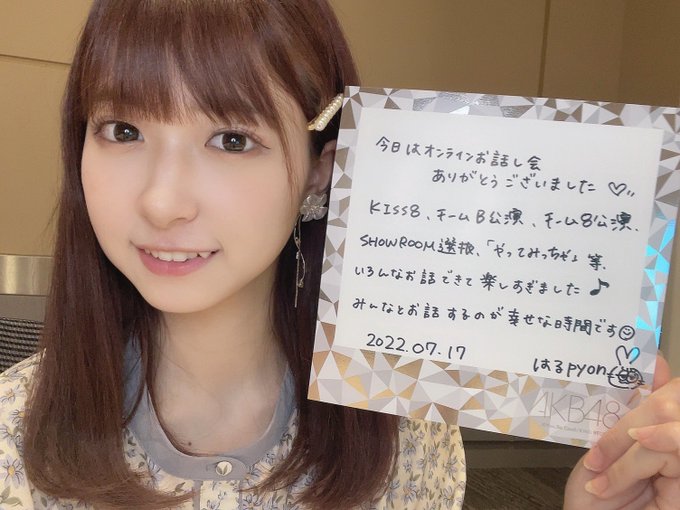 今日はオンラインお話し会
ありがとうございました♡
KISS8、チームB公演、チーム8公演、
SHOWROOM選抜、「やってみっちゃ」等、
いろんなお話できて楽しすぎました♪
みんなとお話するのが幸せな時間です☺
2022.07.17
はるpyon
AKB48